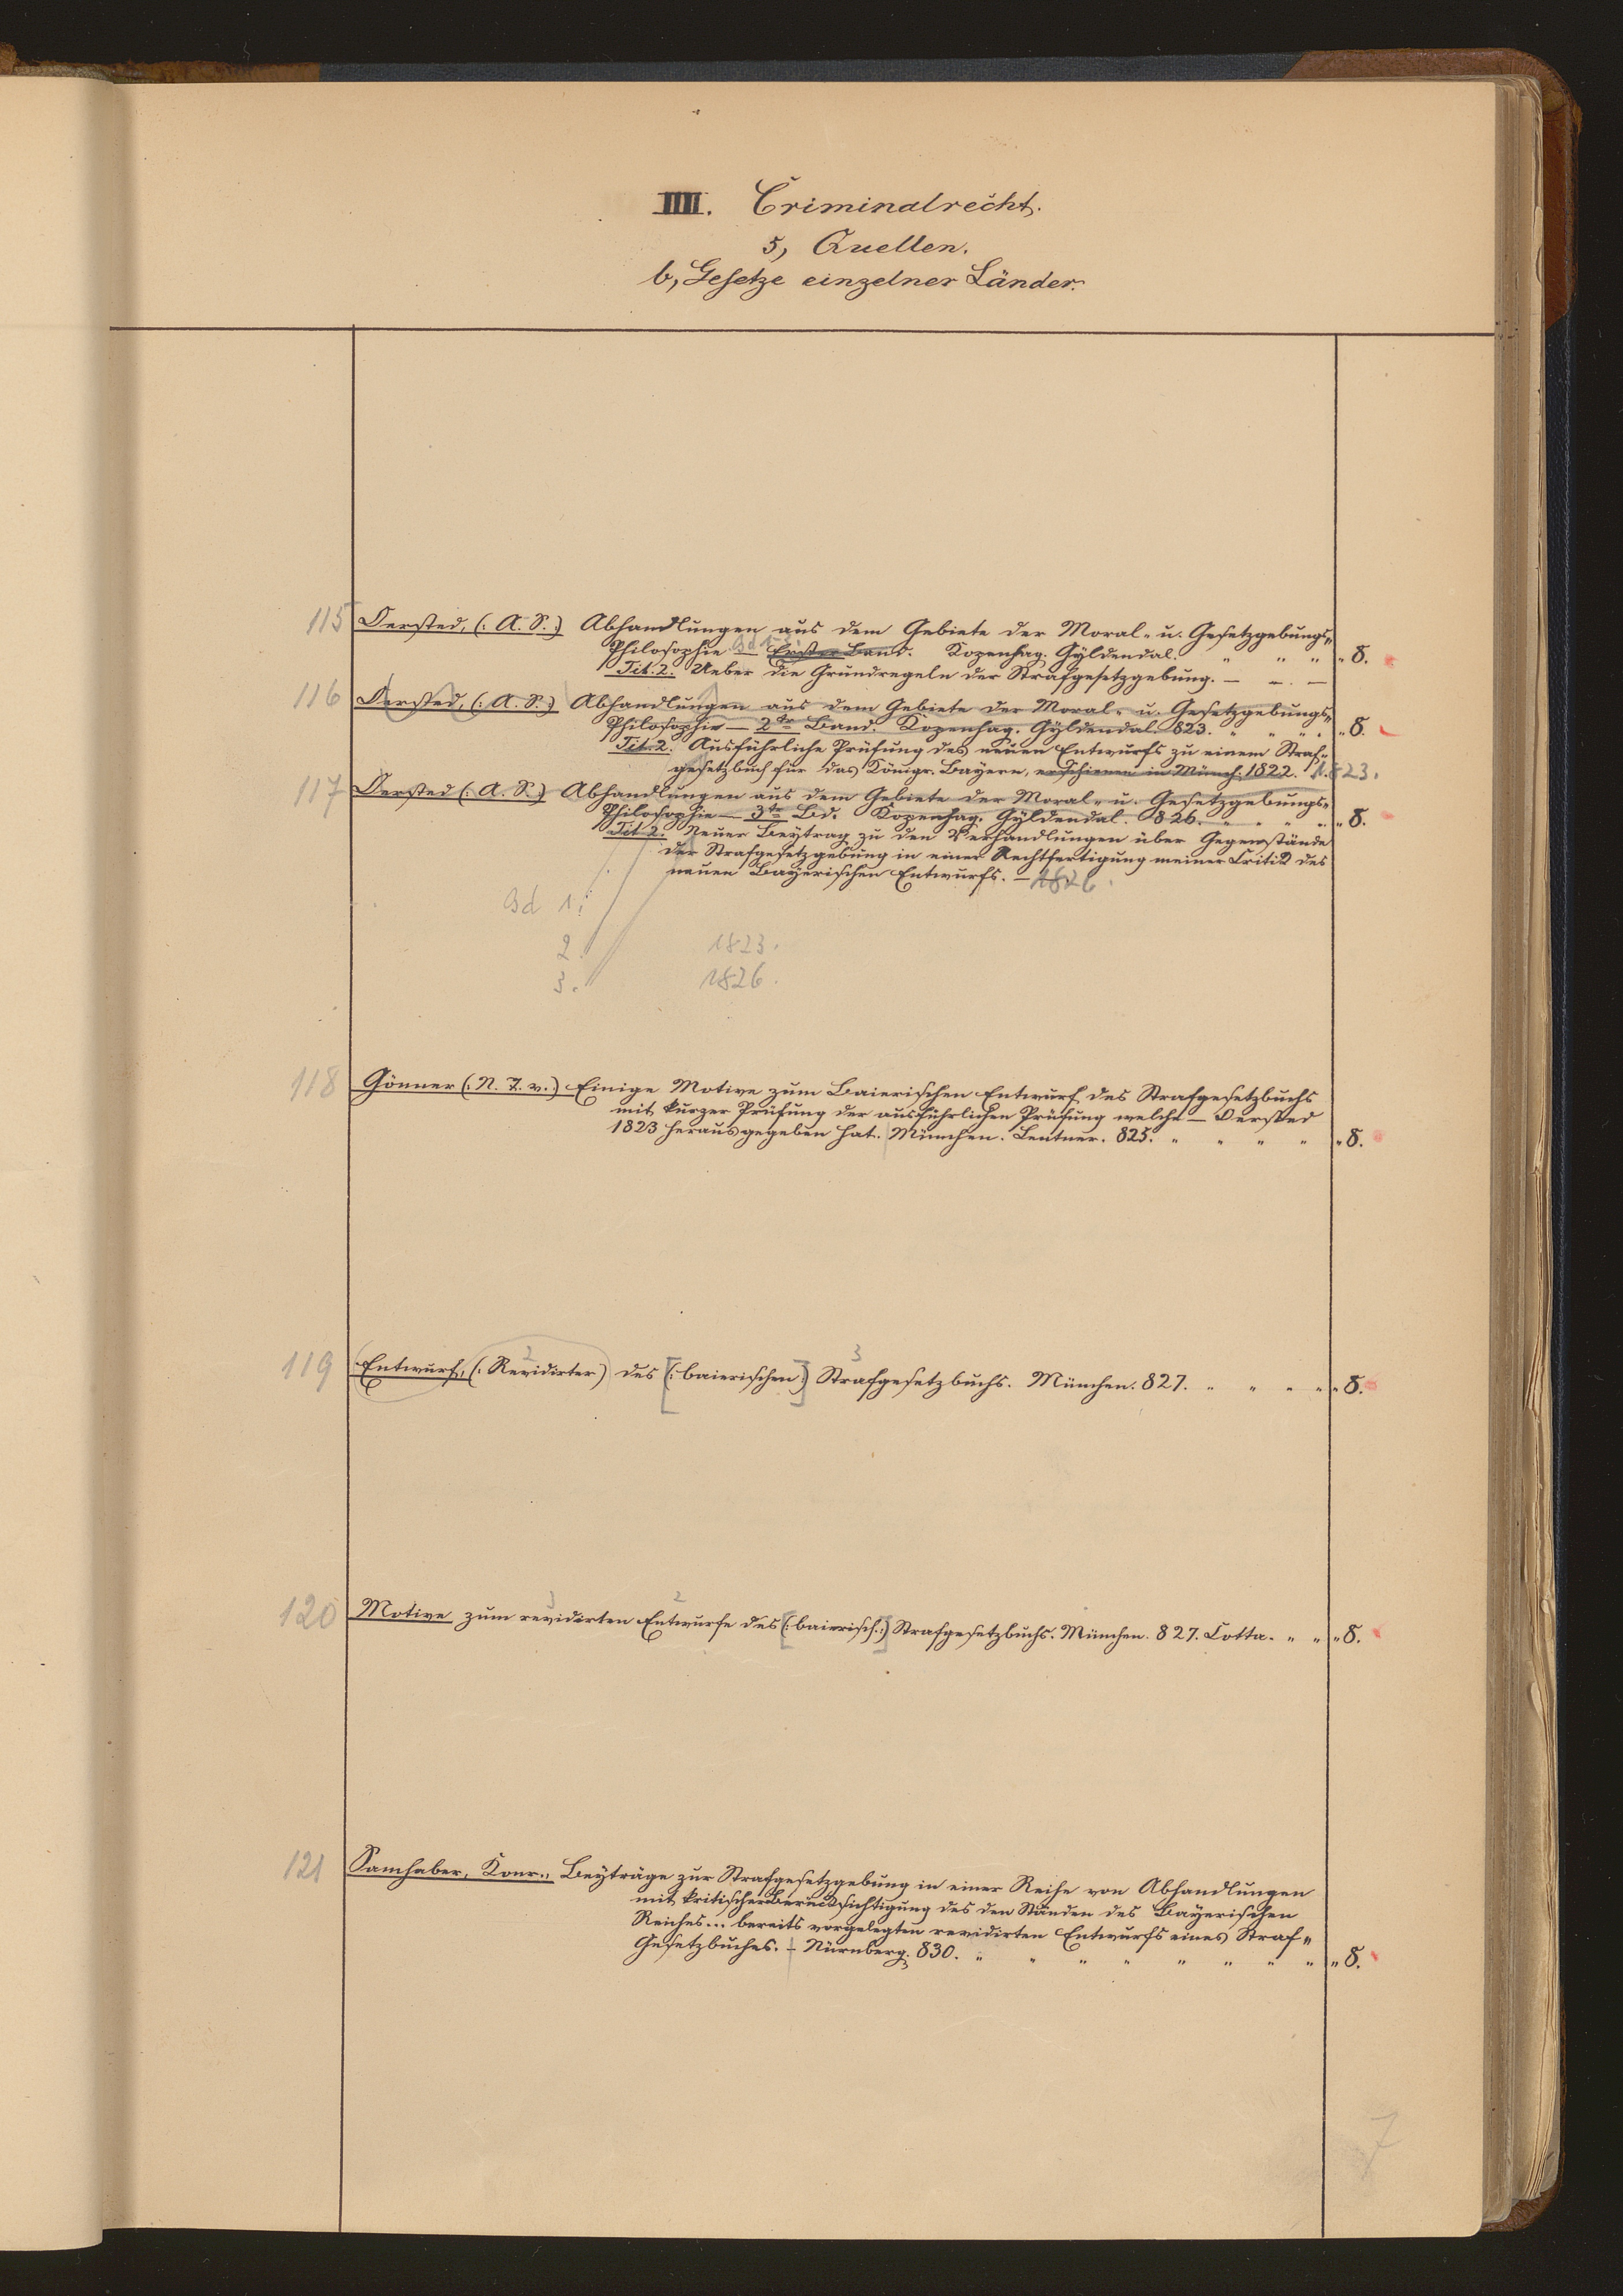 IIII. Criminalrecht.
5, Quellen.
b, Gesetze einzelner Länder.
115 Oersted, (: A. S. :) Abhandlungen aus dem Gebiete der Moral- u. Gesetzgebungs-
Philosophie — Bd 1-3. Erster Band. Kopenhag. Gyldendal. " " " " 8.
Tit. 2. Ueber die Grundregeln der Strafgesetzgebung. — — . —
116 Oersted, (: A. S. :) Abhandlungen aus dem Gebiete der Moral- u. Gesetzgebungs-
Philosophie — 2ter Band. Kopenhag. Gyldendal. 823. " " " " " 8.
Tit. 2. Ausführliche Prüfung des neuen Entwurfs zu einem Straf-
gesetzbuch für das Königr. Bayern, erschienen in Münch. 1822. 1823.
117 Oersted (: A. S. :) Abhandlungen aus dem Gebiete der Moral- u. Gesetzgebungs-
Philosophie — 3ter Bd. Kopenhag. Gyldendal. 826. " " " " " 8.
Tit. 2. Neuer Beytrag zu den Verhandlungen über Gegenstände
der Strafgesetzgebung in einer Rechtfertigung meiner Critik des
neuen Bayerischen Entwurfs. — 1826.
Bd 1.
2. 1823.
3. 1826.
118 Gönner (: N. T. v. :) Einige Motive zum Baierischen Entwurf des Strafgesetzbuchs
mit kurzer Prüfung der ausführlichen Prüfung welche — Oersted
1823 herausgegeben hat. München. Lentner. 825. " " " " " 8.
119 Entwurf, (: Revidirter) des [(: baierischen :)] Strafgesetzbuchs. München. 827. " " " " " 8.
2 3
120 Motive zum revidirten Entwurfe des [(: baierisch. :)] Strafgesetzbuchs. München. 827. Cotta. " " " 8.
3 2
121 Samhaber, Konr., Beyträge zur Strafgesetzgebung in einer Reihe von Abhandlungen
mit kritischer Berücksichtigung des den Ständen des Bayerischen
Reiches... bereits vorgelegten revidirten Entwurfs eines Straf-
Gesetzbuches. — Nürnberg. 830. " " " " " " " " " 8.
7